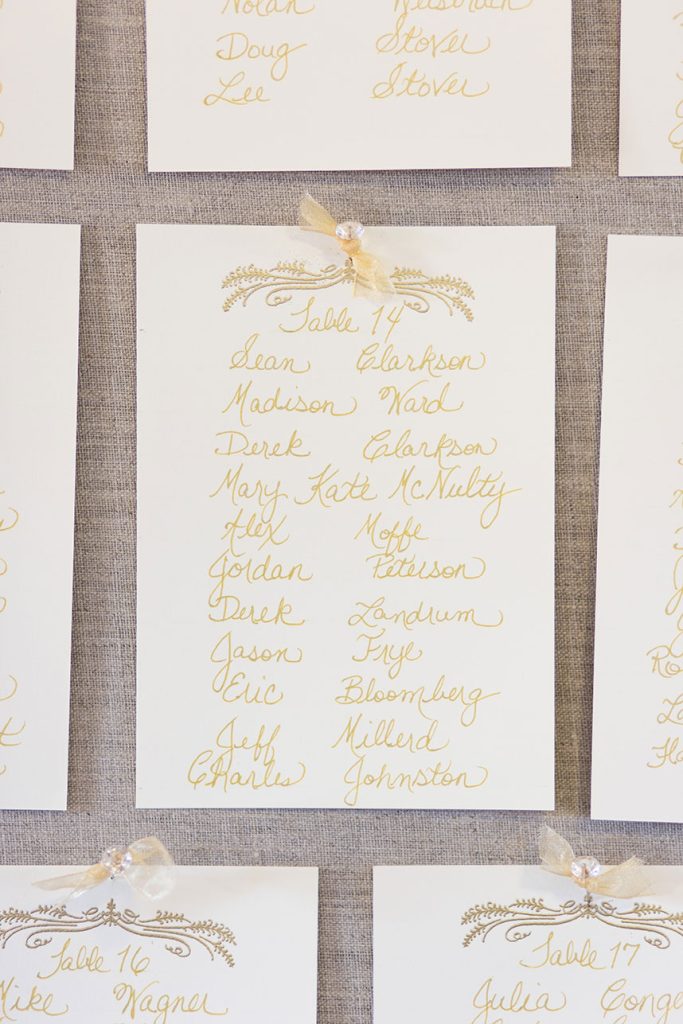 Nolan
Doug Stover
Lee Stover
Table 14
Sean Clarkson
Madison Ward
Derek Clarkson
Mary Kate McNulty
Alex Moffe
Jordan Peterson
Derek Landrum
Jason Frye
Eric Bloomberg
Jeff Millerd
Charles Johnston
Table 16
Mike Wagner
Table 17
Julia